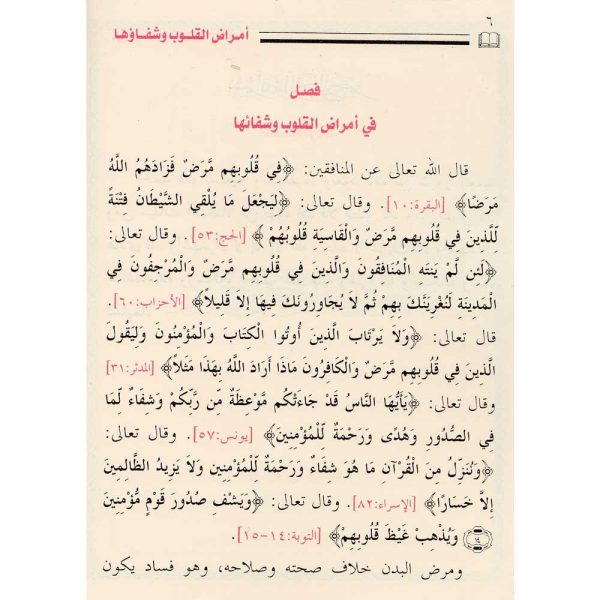 ٦
أمراض القلوب وشفاؤها
فصل
في أمراض القلوب وشفائها
قال الله تعالى عن المنافقين: ﴿فِي قُلُوبِهِم مَّرَضٌ فَزَادَهُمُ اللَّهُ
مَرَضًا﴾ [البقرة:١٠]. وقال تعالى: ﴿لِيَجْعَلَ مَا يُلْقِي الشَّيْطَانُ فِتْنَةً
لِّلَّذِينَ فِي قُلُوبِهِم مَّرَضٌ وَالْقَاسِيَةِ قُلُوبُهُمْ﴾ [الحج:٥٣]. وقال تعالى:
﴿لَئِن لَّمْ يَنتَهِ الْمُنَافِقُونَ وَالَّذِينَ فِي قُلُوبِهِم مَّرَضٌ وَالْمُرْجِفُونَ فِي
الْمَدِينَةِ لَنُغْرِيَنَّكَ بِهِمْ ثُمَّ لاَ يُجَاوِرُونَكَ فِيهَا إِلاَّ قَلِيلاً﴾ [الأحزاب:٦٠].
قال تعالى: ﴿وَلاَ يَرْتَابَ الَّذِينَ أُوتُوا الْكِتَابَ وَالْمُؤْمِنُونَ وَلِيَقُولَ
الَّذِينَ فِي قُلُوبِهِم مَّرَضٌ وَالْكَافِرُونَ مَاذَا أَرَادَ اللَّهُ بِهَذَا مَثَلاً﴾ [المدثر:٣١]
وقال تعالى: ﴿يَأَيُّهَا النَّاسُ قَدْ جَاءَتْكُم مَّوْعِظَةٌ مِّن رَّبِّكُمْ وَشِفَاءٌ لِّمَا
فِي الصُّدُورِ وَهُدًى وَرَحْمَةٌ لِّلْمُؤْمِنِينَ﴾ [يونس:٥٧]. وقال تعالى:
﴿وَنُنَزِّلُ مِنَ الْقُرْآنِ مَا هُوَ شِفَاءٌ وَرَحْمَةٌ لِّلْمُؤْمِنِينَ وَلاَ يَزِيدُ الظَّالِمِينَ
إِلاَّ خَسَارًا﴾ [الإسراء:٨٢]. وقال تعالى: ﴿وَيَشْفِ صُدُورَ قَوْمٍ مُّؤْمِنِينَ
﴿١٤﴾ وَيُذْهِبْ غَيْظَ قُلُوبِهِمْ﴾ [التوبة:١٤-١٥].
ومرض البدن خلاف صحته وصلاحه، وهو فساد يكون